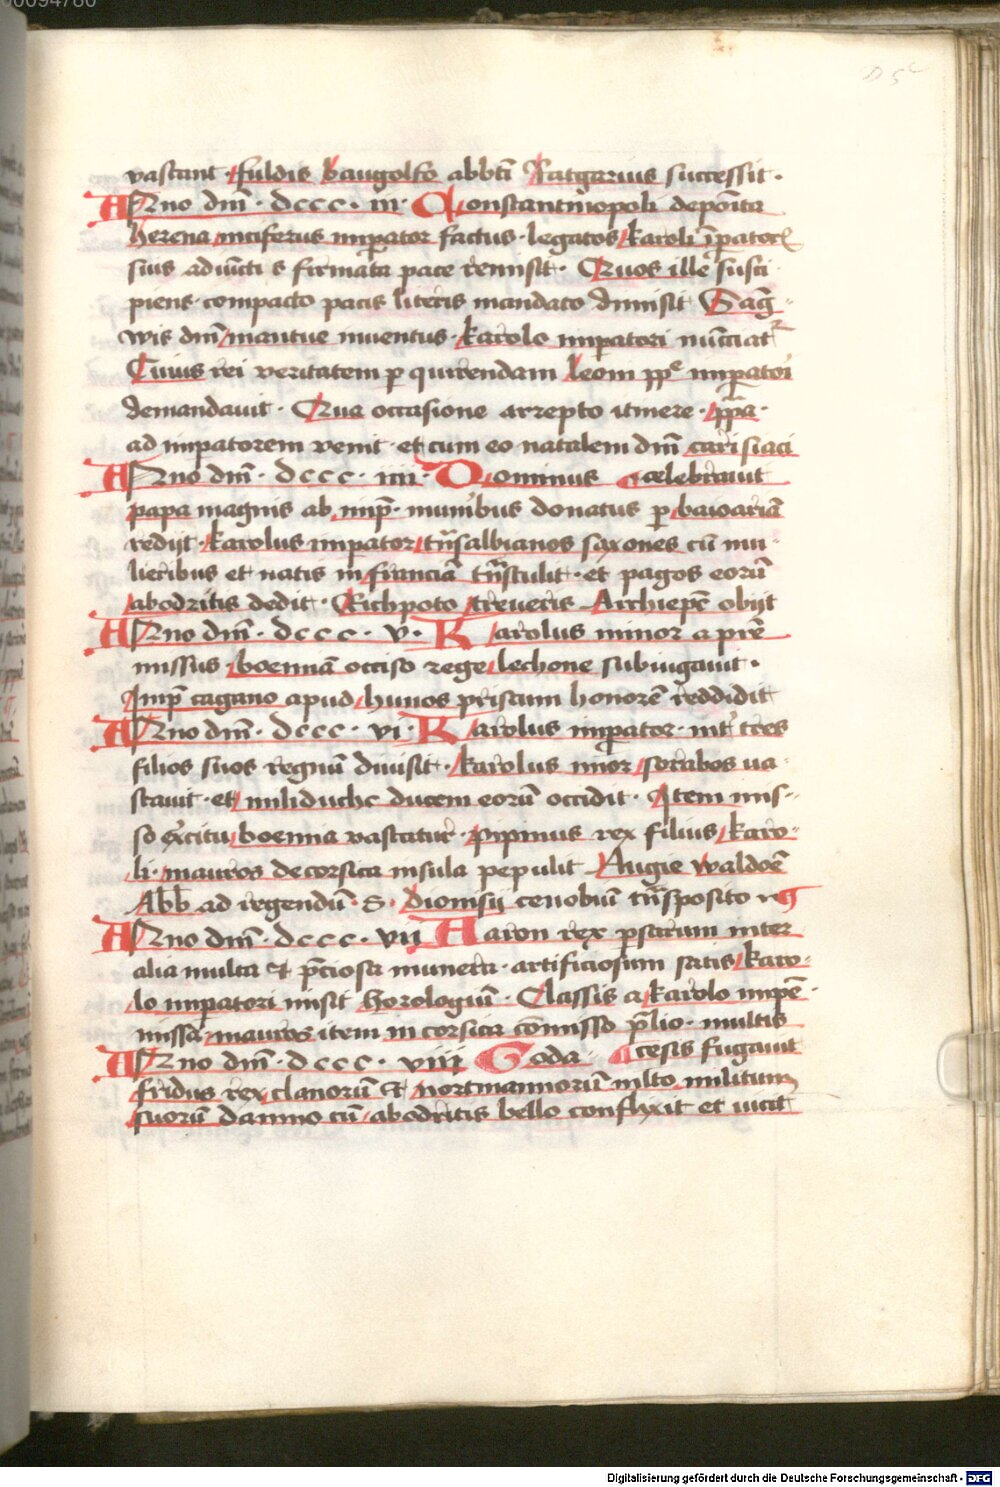 00094780
D 5c
vastant · fuldis baugolfo abbti Ratgarius successit ·
ANno dm̄ · dccc · iii · Constantinopoli deposita
herena niciferus imperator factus · legatos karoli īperatoris
suis adiuncti s firmata pace remisit · Quos ille susci
piens · compacto pacis literis mandato dimisit Sang̅
wis dm̄ mantue inuentus · karolo imperatori nunciatr
Cuius rei veritatem p quirendam leom ppe imperator
demandauit · Qua occasione arrepto itinere · ppa ·
ad impatorem venit · et cum eo natalem dm̄ carisiaci
ANno dm̄ · dccc · iiii · Dominus celebrauit
papa magnis ab imp̄ · munībus donatus p baioariā
redijt · karolus impator trnsalbianos saxones cū mu
lieribus et natis in franciā trnstulit · et pagos eorū
abodritis dedit · Richpoto treueris Archiepē obijt
ANno dm̄ · dccc · v · Karolus minor a prē
missus boemiā occiso rege lechone subiugauit ·
Imp̄ cagano apud hunos priscum honorē reddidit
ANno dm̄ · dccc · vi · Karolus imperator · int tres
filios suos regnū diuisit · karolus mior sorabos ua
stauit · et miliduche ducem eorū occidit · Item mis
so exercitu boemia vastatur · pipinus rex filius karo
li · mauros de corsica insula pepulit Augie waldoē
Abb̄ ad regendū · S · dionisij cenobiū trnsposito
ANno dm̄ · dccc · vii Aaron rex psarum inter
alia multa et preciosa munera · artificiosum satis karo
lo imperatori misit horologiū · Classis a karolo impē ·
missa mauros item in corsica cōmisso prelio · multis
ANno dm̄ · dccc · viii Goda cesis fugauit
fridus rex clanorū et nortmannorū mlto militum
suorū damno cū abodritis bello conflixit et uicit
Digitalisierung gefördert durch die Deutsche Forschungsgemeinschaft - DFG